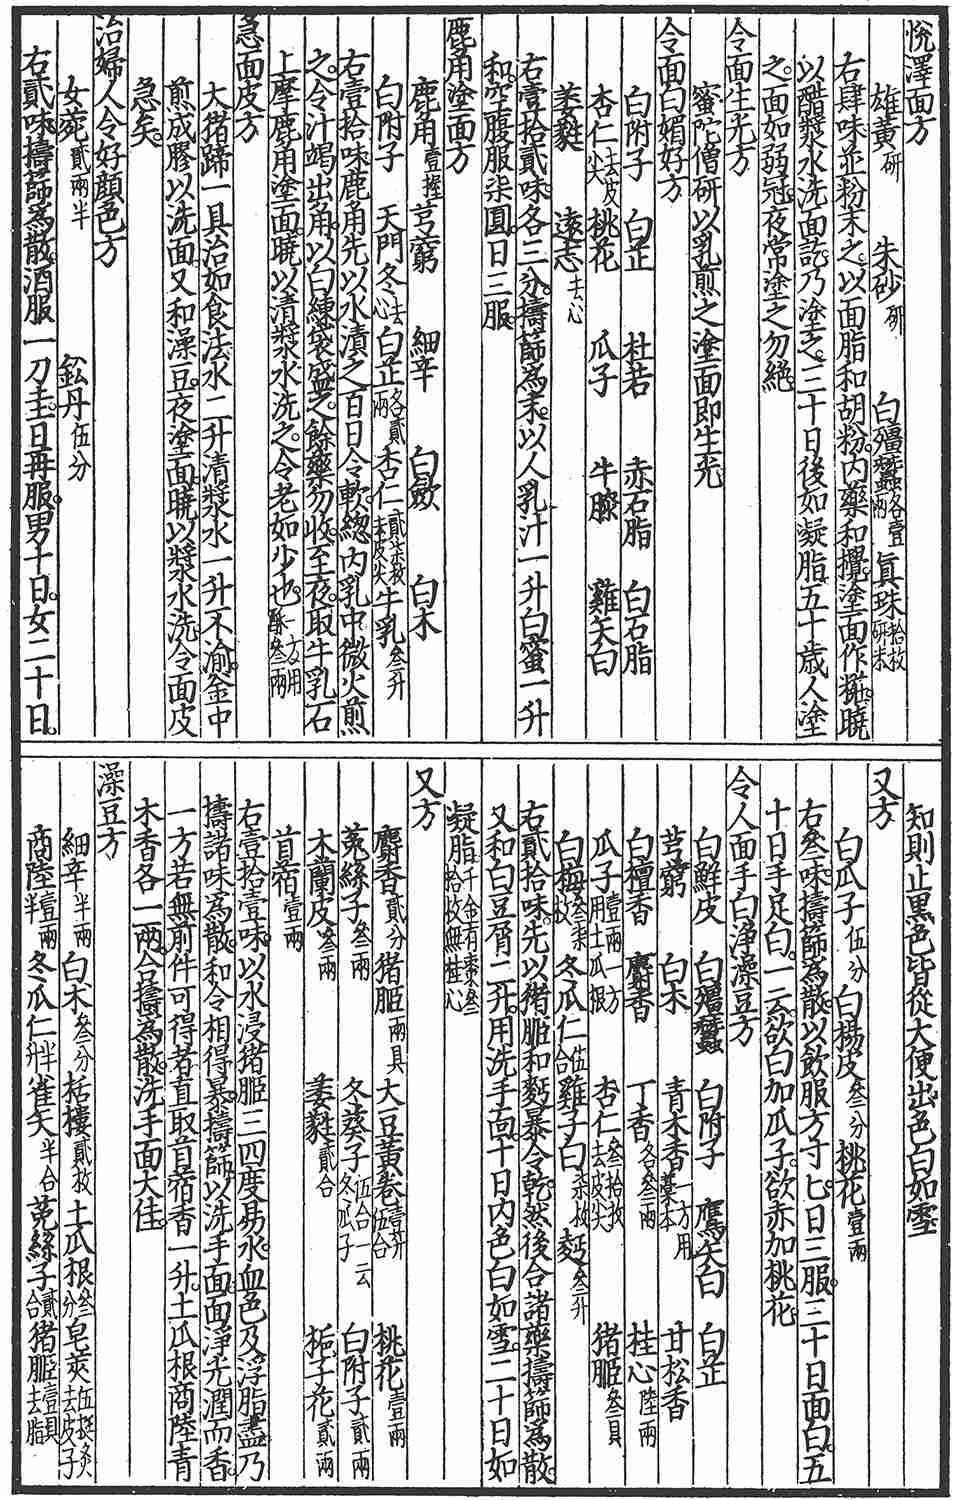 悅澤面方
雄黃研 朱砂研 白殭蠶各壹兩 真珠拾枚研末
右肆味並粉末之以面脂和胡粉內藥和攪塗面作粧曉
以醋漿水洗面訖乃塗之三十日後如凝脂五十歲人塗
之面如弱冠夜常塗之勿絕
令面生光方
蜜陀僧研以乳煎之塗面即生光
令面白媚好方
白附子 白芷 杜若 赤石脂 白石脂
杏仁去皮尖 桃花 瓜子 牛膝 雞矢白
萎蕤 遠志去心
右壹拾貳味各三分擣篩為末以人乳汁一升白蜜一升
和空腹服柒圓日三服
鹿角塗面方
鹿角壹握 芎藭 細辛 白斂 白朮
白附子 天門冬去心 白芷各貳兩 杏仁貳柒枚去皮尖 牛乳叁升
右壹拾味鹿角先以水漬之百日令軟總內乳中微火煎
之令汁竭出角以白練袋盛之餘藥勿收至夜取牛乳石
上摩鹿角塗面曉以清漿水洗之令老如少也一方用酥叁兩
急面皮方
大猪蹄一具治如食法水二升清漿水一升不渝釜中
煎成膠以洗面又和澡豆夜塗面曉以漿水洗令面皮
急矣
治婦人令好顏色方
女菀貳兩半 鈆丹伍分
右貳味擣篩為散酒服一刀圭日再服男十日女二十日
知則止黑色皆從大便出色白如雪
又方
白瓜子伍分 白楊皮叁分 桃花壹兩
右叁味擣篩為散以飲服方寸匕日三服三十日面白五
十日手足白一云欲白加瓜子欲赤加桃花
令人面手白淨澡豆方
白鮮皮 白殭蠶 白附子 鷹矢白 白芷
芎藭 白朮 青木香一方用藁本 甘松香
白檀香 麝香 丁香各叁兩 桂心陸兩
瓜子壹兩一方用土瓜根 杏仁叁拾枚去皮尖 猪胵叁具
白梅叁柒枚 冬瓜仁伍合 雞子白柒枚 麫叁升
右貳拾味先以猪胵和麫暴令乾然後合諸藥擣篩為散
又和白豆屑二升用洗手面十日內色白如雪二十日如
凝脂千金有棗叁拾枚無桂心
又方
麝香貳分 猪胵兩具 大豆黃卷壹升伍合 桃花壹兩
菟絲子叁兩 冬葵子伍合一云冬瓜子 白附子貳兩
木蘭皮叁兩 萎蕤貳合 梔子花貳兩
苜蓿壹兩
右壹拾壹味以水浸猪胵三四度易水血色及浮脂盡乃
擣諸味為散和令相得暴擣篩以洗手面面淨光潤而香
一方若無前件可得者直取苜蓿香一升土瓜根商陸青
木香各一兩合擣為散洗手面大佳
澡豆方
細辛半兩 白朮叁分 栝樓貳枚 土瓜根叁分 皂莢伍挺炙去皮子
商陸壹兩半 冬瓜仁半升 雀矢半合 菟絲子貳合 猪胵壹具去脂